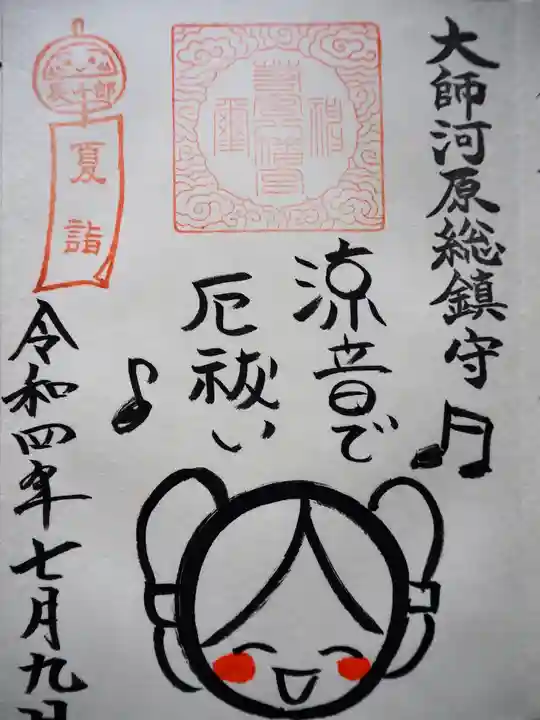 大師河原総鎮守
涼音で
厄祓い
夏詣
令和四年七月九日